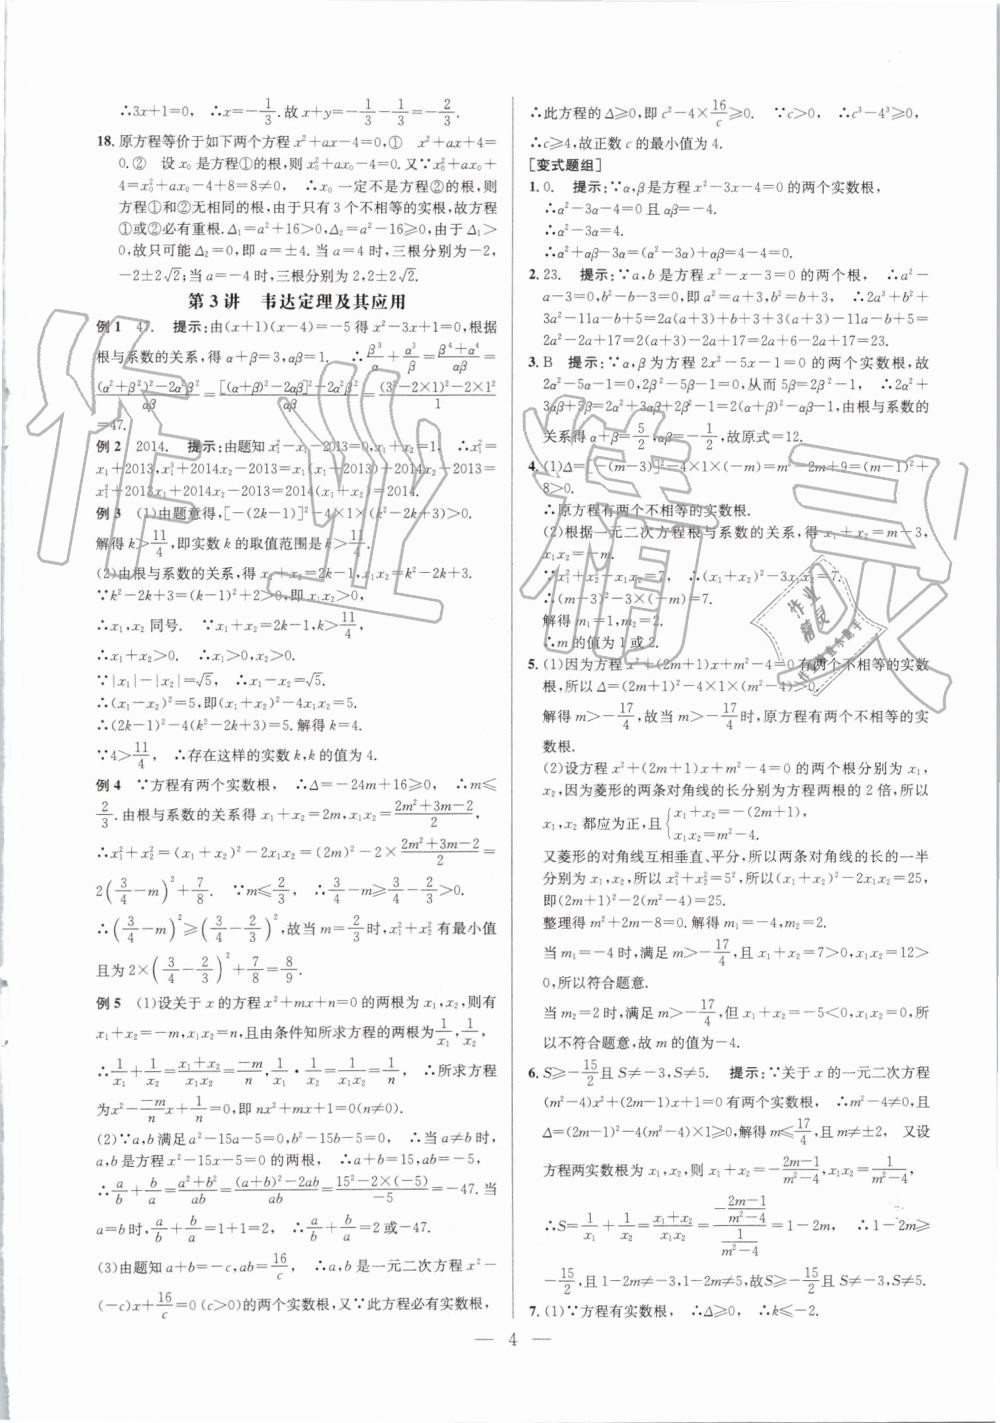 ∴3x+1=0, ∴x=-1/3.故x+y=-1/3-1/3=-2/3.
18.原方程等价于如下两个方程x²+ax-4=0,① x²+ax+4=
0.② 设x₀是方程①的根,则x₀²+ax₀-4=0.又∵x₀²+ax₀+
4=x₀²+ax₀-4+8=8≠0, ∴x₀一定不是方程②的根,则
方程①和②无相同的根,由于只有3个不相等的实根,故方程
①或②必有重根.Δ₁=a²+16>0,Δ₂=a²-16≥0,由于Δ₁>
0,故只可能Δ₂=0,即a=±4.当a=4时,三根分别为-2,
-2±2√2;当a=-4时,三根分别为2,2±2√2.
第3讲 韦达定理及其应用
例1 47. 提示:由(x+1)(x-4)=-5得x²-3x+1=0,根据
根与系数的关系,得α+β=3,αβ=1. ∴β³/α+α³/β=(β⁴+α⁴)/αβ=
((α²+β²)²-2α²β²)/αβ=([(α+β)²-2αβ]²-2α²β²)/αβ=((3²-2×1)²-2×1²)/1
=47.
例2 2014. 提示:由题知x₁²-x₁-2013=0,x₁+x₂=1, ∴x₁²=
x₁+2013,x₁³+2014x₂-2013=x₁(x₁+2013)+2014x₂-2013=
x₁+2013+2013x₁+2014x₂-2013=2014(x₁+x₂)=2014.
例3 (1)由题意得,[-(2k-1)]²-4×1×(k²-2k+3)>0.
解得k>11/4,即实数k的取值范围是k>11/4.
(2)由根与系数的关系,得x₁+x₂=2k-1,x₁x₂=k²-2k+3.
∵k²-2k+3=(k-1)²+2>0,即x₁x₂>0.
∴x₁,x₂同号. ∵x₁+x₂=2k-1,k>11/4,
∴x₁+x₂>0. ∴x₁>0,x₂>0.
∵|x₁|-|x₂|=√5, ∴x₁-x₂=√5.
∴(x₁-x₂)²=5,即(x₁+x₂)²-4x₁x₂=5.
∴(2k-1)²-4(k²-2k+3)=5.解得k=4.
∵4>11/4, ∴存在这样的实数k,k的值为4.
例4 ∵方程有两个实数根, ∴Δ=-24m+16≥0, ∴m≤
2/3.由根与系数的关系得x₁+x₂=2m,x₁x₂=(2m²+3m-2)/2,
∴x₁²+x₂²=(x₁+x₂)²-2x₁x₂=(2m)²-2×(2m²+3m-2)/2=
2(3/4-m)²+7/8. ∵m≤2/3, ∴3/4-m≥3/4-2/3>0.
∴(3/4-m)²≥(3/4-2/3)²,故当m=2/3时,x₁²+x₂²有最小值
且为2×(3/4-2/3)²+7/8=8/9.
例5 (1)设关于x的方程x²+mx+n=0的两根为x₁,x₂,则有
x₁+x₂=-m,x₁x₂=n,且由条件知所求方程的两根为1/x₁,1/x₂,
∴1/x₁+1/x₂=(x₁+x₂)/x₁x₂=-m/n,1/x₁·1/x₂=1/x₁x₂=1/n, ∴所求方程
为x²-(-m/n)x+1/n=0,即nx²+mx+1=0(n≠0).
(2)∵a,b满足a²-15a-5=0,b²-15b-5=0, ∴当a≠b时,
a,b是方程x²-15x-5=0的两根, ∴a+b=15,ab=-5,
∴a/b+b/a=(a²+b²)/ab=((a+b)²-2ab)/ab=(15²-2×(-5))/-5=-47.当
a=b时,a/b+b/a=1+1=2, ∴a/b+b/a=2或-47.
(3)由题知a+b=-c,ab=16/c, ∴a,b是一元二次方程x²-
(-c)x+16/c=0(c>0)的两个实数根,又∵此方程必有实数根,
∴此方程的Δ≥0,即c²-4×16/c≥0. ∵c>0, ∴c³-4³≥0.
∴c≥4,故正数c的最小值为4.
[变式题组]
1.0. 提示:∵α,β是方程x²-3x-4=0的两个实数根,
∴α²-3α-4=0且αβ=-4.
∴α²-3α=4.
∴α²+αβ-3α=(α²-3α)+αβ=4-4=0.
2.23. 提示:∵a,b是方程x²-x-3=0的两个根, ∴a²-
a-3=0,b²-b-3=0,即a²=a+3,b²=b+3, ∴2a³+b²+
3a²-11a-b+5=2a(a+3)+b+3+3(a+3)-11a-b+5=
2a²-2a+17=2(a+3)-2a+17=2a+6-2a+17=23.
3.B 提示:∵α,β为方程2x²-5x-1=0的两个实数根,故
2α²-5α-1=0,2β²-5β-1=0,从而5β=2β²-1, ∴2α²+
3αβ+5β=2α²+3αβ+2β²-1=2(α+β)²-αβ-1,由根与系数的
关系得α+β=5/2,αβ=-1/2,故原式=12.
4.(1)Δ=[-(m-3)]²-4×1×(-m)=m²-2m+9=(m-1)²+
8>0.
∴原方程有两个不相等的实数根.
(2)根据一元二次方程根与系数的关系,得x₁+x₂=m-3,
x₁x₂=-m.
∵x₁²+x₂²-x₁x₂=7, ∴(x₁+x₂)²-3x₁x₂=7.
∴(m-3)²-3×(-m)=7.
解得m₁=1,m₂=2.
∴m的值为1或2.
5.(1)因为方程x²+(2m+1)x+m²-4=0有两个不相等的实数
根,所以Δ=(2m+1)²-4×1×(m²-4)>0.
解得m>-17/4,故当m>-17/4时,原方程有两个不相等的实
数根.
(2)设方程x²+(2m+1)x+m²-4=0的两个根分别为x₁,
x₂,因为菱形的两条对角线的长分别为方程两根的2倍,所以
x₁,x₂都应为正,且{x₁+x₂=-(2m+1),
x₁x₂=m²-4.
又菱形的对角线互相垂直、平分,所以两条对角线的长的一半
分别为x₁,x₂,所以x₁²+x₂²=5²,所以(x₁+x₂)²-2x₁x₂=25,
即(2m+1)²-2(m²-4)=25.
整理得m²+2m-8=0.解得m₁=-4,m₂=2.
当m₁=-4时,满足m>-17/4,且x₁+x₂=7>0,x₁x₂=12>
0.所以符合题意.
当m₂=2时,满足m>-17/4,但x₁+x₂=-5<0,x₁x₂=0,所
以不符合题意,故m的值为-4.
6.S≥-15/2且S≠-3,S≠5. 提示:∵关于x的一元二次方程
(m²-4)x²+(2m-1)x+1=0有两个实数根, ∴m²-4≠0,且
Δ=(2m-1)²-4(m²-4)×1≥0,解得m≤17/4且m≠±2, 又设
方程两实数根为x₁,x₂,则x₁+x₂=-(2m-1)/(m²-4),x₁x₂=1/(m²-4),
∴S=1/x₁+1/x₂=(x₁+x₂)/x₁x₂=(-(2m-1)/(m²-4))/(1/(m²-4))=1-2m, ∴1-2m≥
-15/2,且1-2m≠-3,1-2m≠5,故S≥-15/2且S≠-3,S≠5.
7.(1)∵方程有实数根, ∴Δ≥0, ∴k≤-2.
— 4 —
作业精灵
作业
精灵